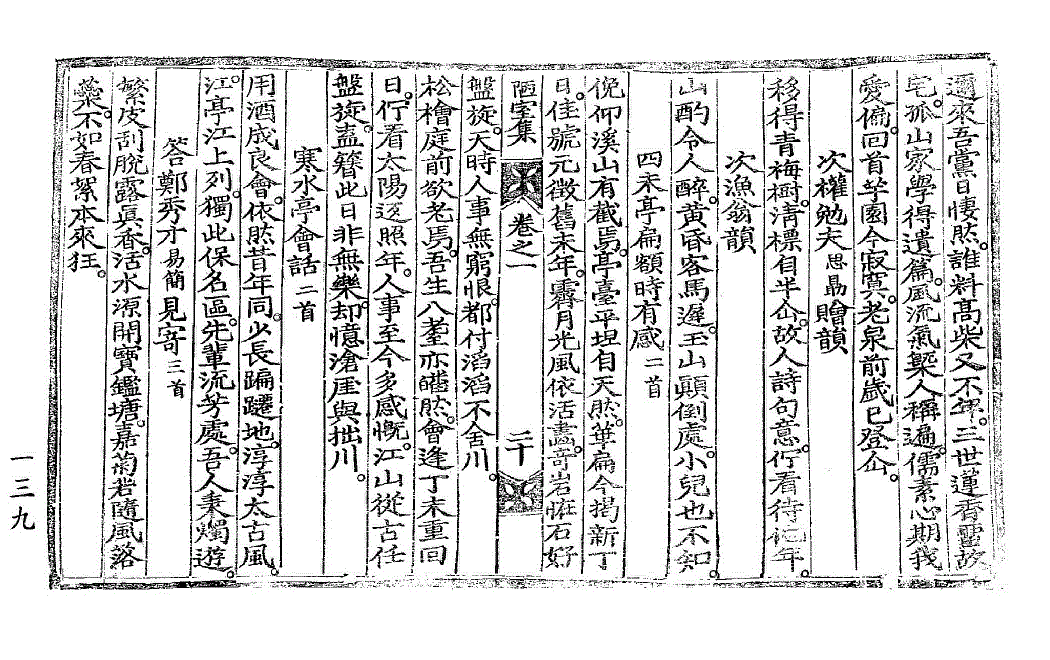 邇來吾黨日悽然。誰料高柴又不年。三世蓮齋靈故
宅。孤山家學得遺篇。風流氣槩人稱遍。儒素心期我
愛偏。回首芋園今寂寞。老泉前歲已登仚。
次權勉夫思晶贈韻
移得靑梅樹。淸標自半仚。故人詩句意。佇看待花年。
次漁翁韻
山酌令人醉。黃昏客馬遲。玉山顚倒處。小兒也不知。
四未亭扁額時有感二首
俛仰溪山有截焉。亭臺平捏自天然。華扁今揭新丁
日。佳號元徵舊未年。霽月光風依活畵。奇岩恠石好
陋室集 卷之一 二十
盤旋。天時人事無窮恨。都付滔滔不舍川。
松檜庭前欲老焉。吾生八耋亦皤然。會逢丁未重回
日。佇看太陽返照年。人事至今多感慨。江山從古任
盤旋。盍簪此日非無樂。却憶滄厓與拙川。
寒水亭會話二首
用酒成良會。依然昔年同。少長蹁躚地。淳淳太古風。
江亭江上列。獨此保名區。先輩流芳處。吾人秉燭遊。
答鄭秀才易簡見寄三首
繁皮刮脫露眞香。活水源開寶鑑塘。嘉菊若隨風落
蘂。不如春絮本來狂。
一三九